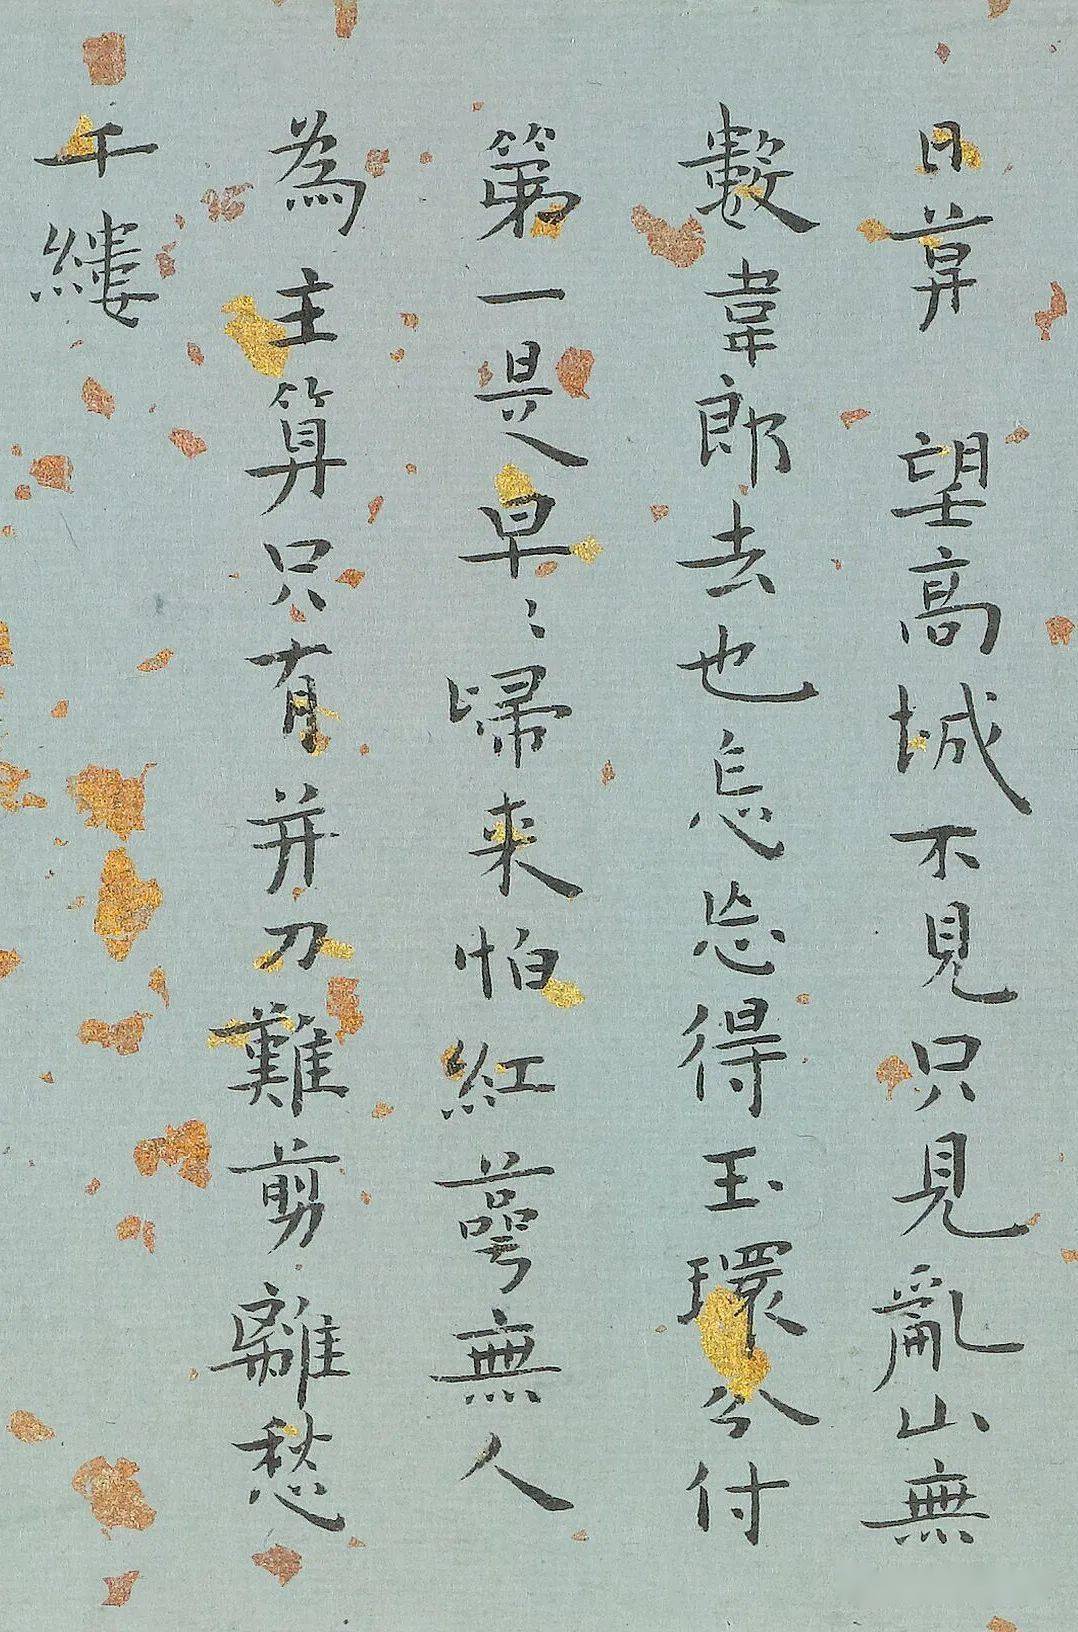 日暮 望高城不見只見亂山無
數韋郎去也怎忘得玉環分付
第一是早〻歸來怕紅萼無人
為主算只有并刀難剪離愁
千縷